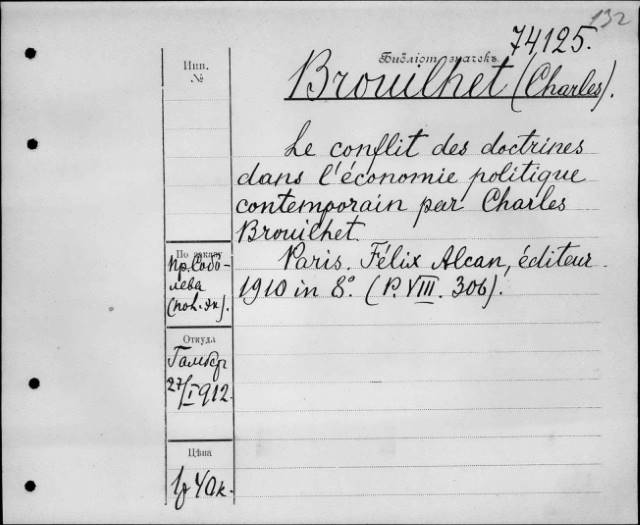 132
74,125.
Библіот. значекъ
Инв.
№
Brouilhet (Charles).
Le conflit des doctrines
dans l'économie politique
contemporain par Charles
Brouilhet
По заказу
Пр. Собо-
лева
(пол. эк.).
Paris. Félix Alcan, éditeur
1910 in 8°. (P. VIII. 306).
Откуда
27/I 912.
Цѣна
40к.